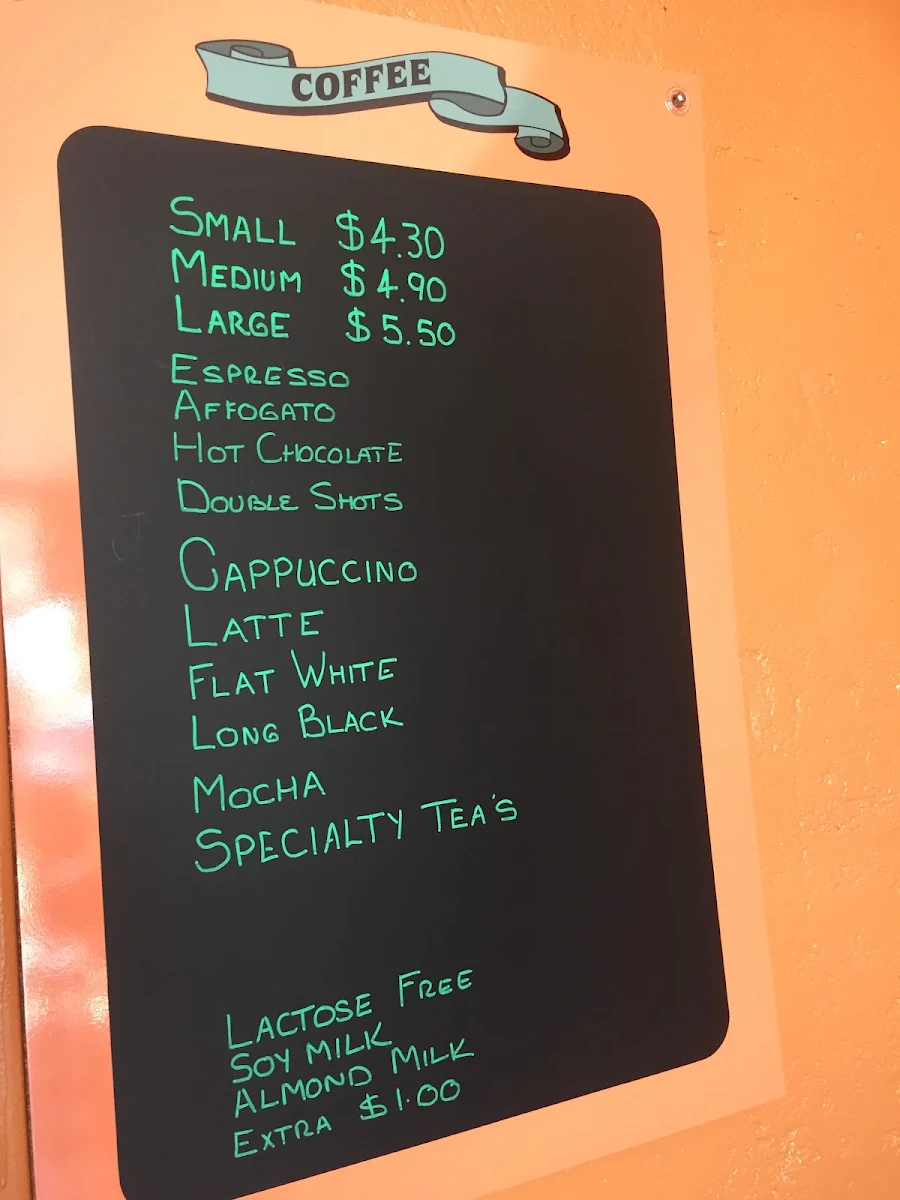 COFFEE
SMALL $4.30
MEDIUM $4.90
LARGE $5.50
ESPRESSO
AFFOGATO
HOT CHOCOLATE
DOUBLE SHOTS
CAPPUCCINO
LATTE
FLAT WHITE
LONG BLACK
MOCHA
SPECIALTY TEA'S
LACTOSE FREE
SOY MILK
ALMOND MILK
EXTRA $1.00